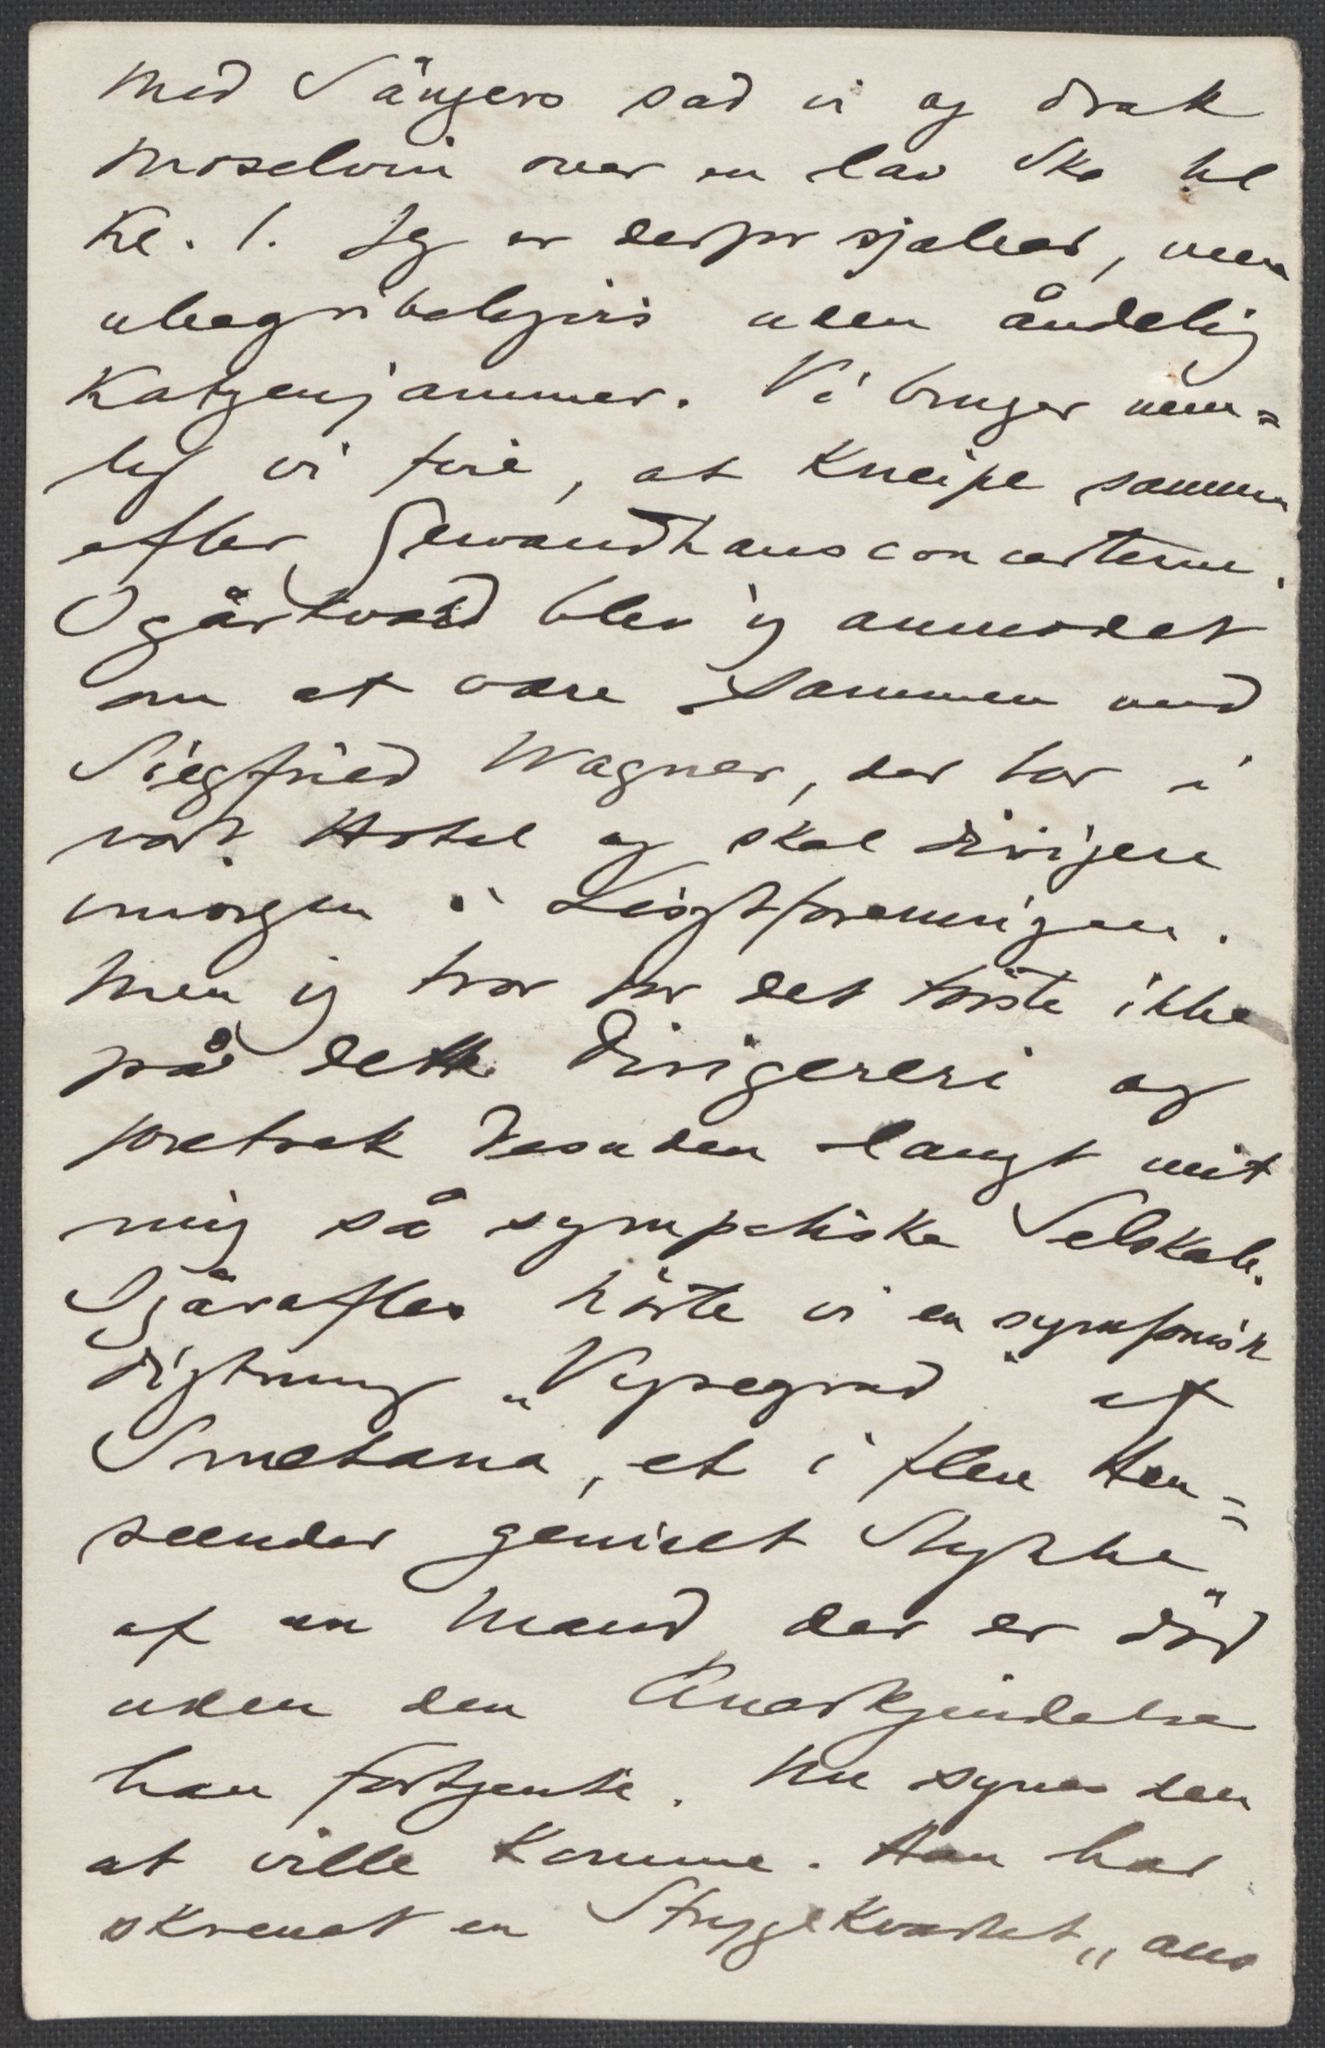 med Sängers sad vi og drak
Moselvin over en lav Sko til
Kl. 1. Jeg er derfor sjaber, men
ubegribeligvis uden åndelig
Katzenjammer. Vi bruger nem=
lig vi fire, at Kneipe sammen
efter Gewandhausconcerterne.
Igårkvæld blev jeg anmodet
om at være sammen med
Siegfried Wagner, der bor i
vort Hotel og skal dirigere
imorgen i Lisztforeningen.
Men jeg tror for det første ikke
på dette Dirigereri og
foretrak desuden langt mit
mig så sympatiske Selskab.
Igåraftes hörte vi en symfonisk
digtning "Vysegrad" af
Smetana, et i flere Hen=
seender genialt Stykke
af en Mand der er död
uden den Anerkjendelse
han fortjente. Nu synes den
at ville komme. Han har
skrevet en Strygekvartet "aus